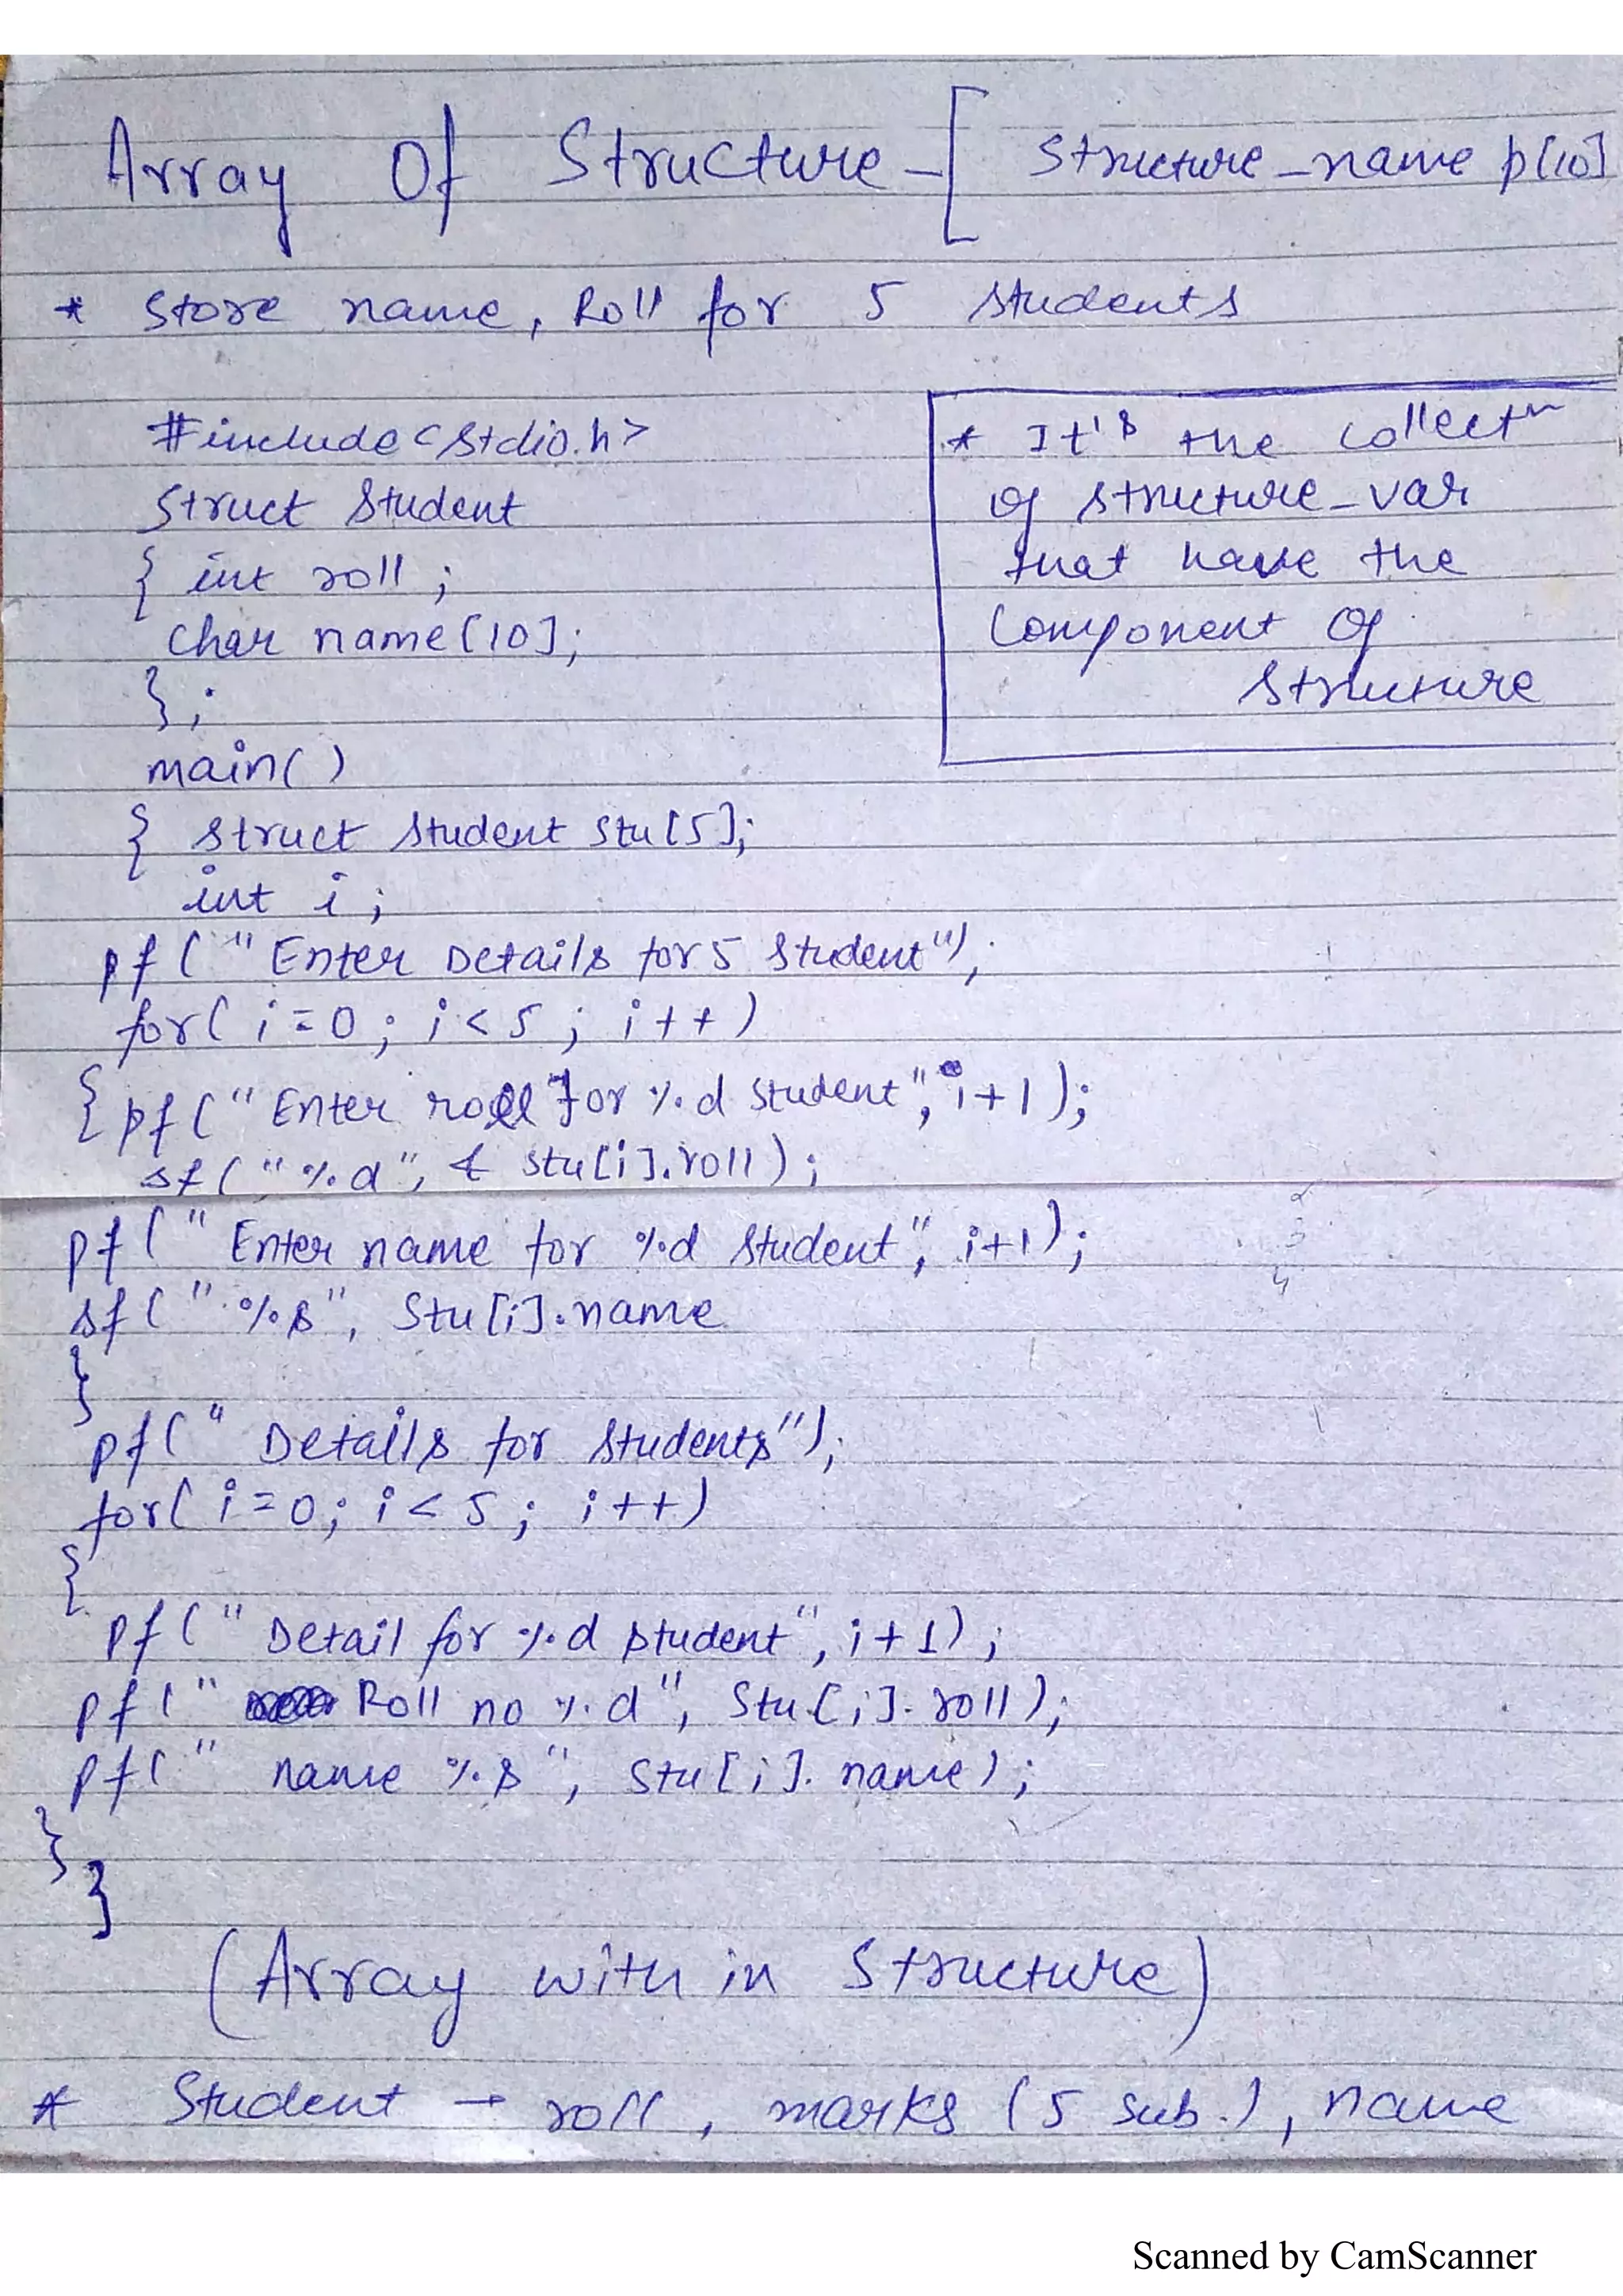 Array Of Structure - [ Structure_name p[10]
* Store name, Roll for 5 students
#include<stdio.h>
Struct Student
{ int roll ;
char name[10];
};
main()
{ struct student stu[5];
int i ;
pf ( "Enter Details for 5 student");
for( i=0 ; i<5 ; i++ )
{ pf ( "Enter roll for %d student", i+1 );
sf ( "%d", & stu[i].roll ) ;
pf ( "Enter name for %d student", i+1 );
sf ( "%s", Stu[i].name
}
pf ( " Details for students");
for( i=0; i<5 ; i++)
{
pf ( " Detail for %d student", i+1) ;
pf ( " Roll no %d", Stu[i].roll );
pf ( " name %s ", Stu[i].name ) ;
}
}
* It's the collectn
of structure_var
that have the
Component of
structure
2
3
4
(Array with in Structure)
* Student → roll , marks (5 sub.), name
Scanned by CamScanner